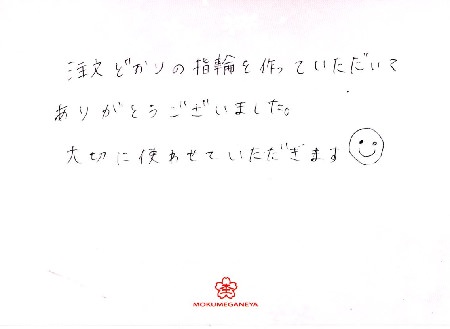 注文どおりの指輪を作っていただいて
ありがとうございました。
大切に使わせていただきます
MOKUMEGANEYA